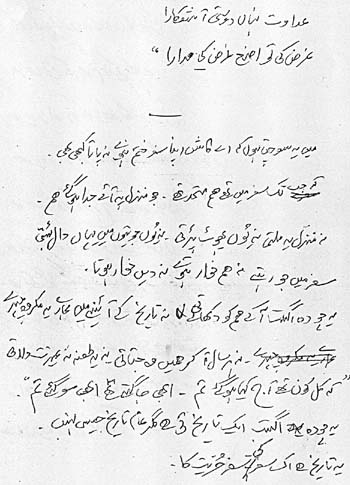 عداوت نہاں دوستی آشکارا
غرض کی تواضع غرض کی مدارا "
میں یہ سوچتا ہوں کہ اے کاش اپنا سفر ختم ہونے نہ پاتا کبھی بھی ۔
کہ جب تک سفر میں تھے ہم متحد تھے ۔ جو منزل پہ آئے جدا ہو گئے ہم ۔
نہ منزل پہ ملتی نہ یوں پھوٹ پڑتی ۔ نہ یوں جوتیوں میں یہاں دال بٹتی
سفر میں جو رہتے نہ ہم خوار ہوتے نہ دیس خوار ہوتا ۔
یہ چودہ اگست آ کے ہم کو دکھاتی نہ تاریخ کے آئینے میں ہمارے یہ مکروہ چہرے
نہ ہر سال آ کر ہمیں وہ جتاتی یہ طعنہ نہ غیرت دلاتی
" کہ کل کون تھے آج کیا ہو گئے تم ۔ ابھی جاگتے تھے ابھی سو گئے تم " ۔
یہ چودہ اگست ایک تاریخ تو ہے مگر عام تاریخ جیسی نہیں ۔
یہ تاریخ ہے اک سفر کی سفر حریت کا ۔